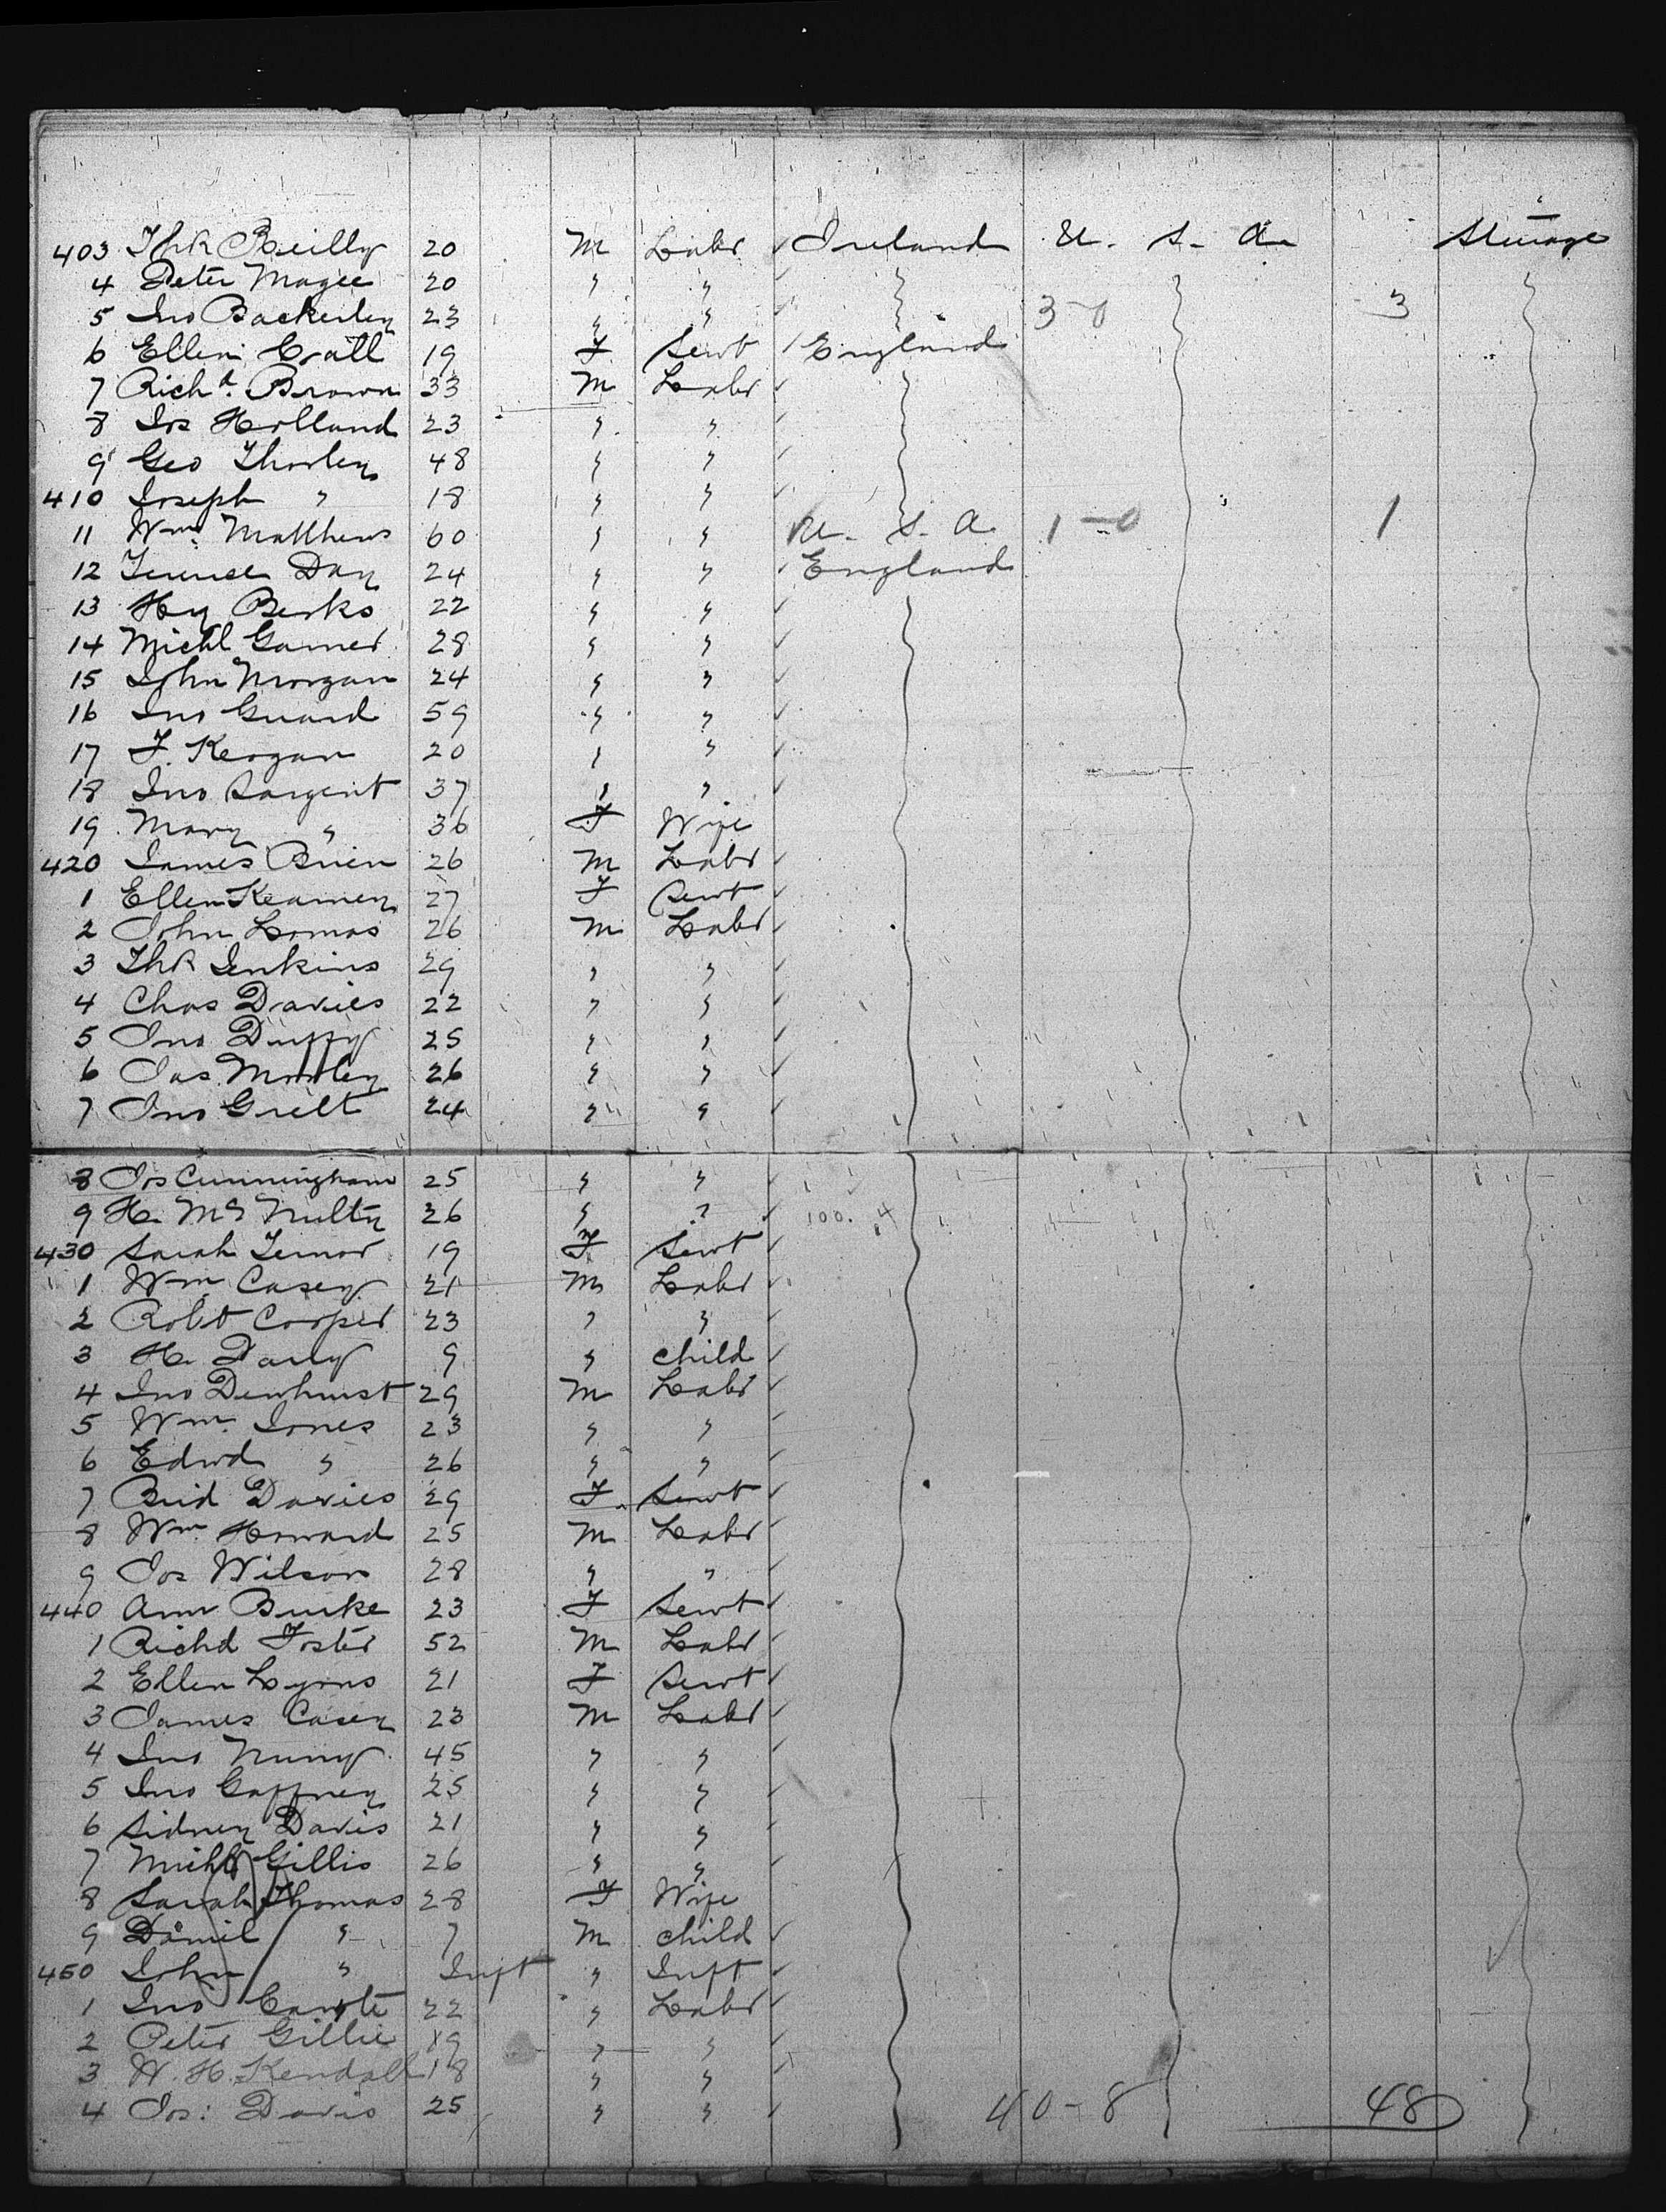 403 Thos Reilly 20 M Labr ✓ Ireland U. S. A. Steerage
4 Peter Magee 20 " "
5 Jno Backerley 23 " " 3-0 3
6 Ellen Coall 19 F Servt England
7 Richd. Brown 33 M Labr
8 Jos Holland 23 " "
9 Geo Thorley 48 " "
410 Joseph " 18 " "
11 Wm. Matthews 60 " " U. S. A 1-0 1
12 Terence Day 24 " " England
13 Hy Berks 22 " "
14 Michl Garner 28 " "
15 John Morgan 24 " "
16 Jno Guard 59 " "
17 F. Keogan 20 " "
18 Jno Sargent 37 " "
19 Mary " 36 F Wife
420 James Brien 26 M Labr
1 Ellen Kearney 27 F Servt
2 John Lomas 26 M Labr
3 Thos Jenkins 29 " "
4 Chas Davies 22 " "
5 Jno Duffy 25 " "
6 Jas Morley 26 " "
7 Jno Grett 24 " "
8 Jos Cunningham 25 " "
9 H. Mc Nulty 26 " " 100. 4
430 Sarah 19 F Servt
1 Wm Casey 21 M Labr
2 Robt Cooper 23 " "
3 H. Darly 9 " child
4 Jno Dewhurst 29 M Labr
5 Wm. Jones 23 " "
6 Edwd " 26 " "
7 Brid Davies 29 F Servt
8 Wm Howard 25 M Labr
9 Jos Wilson 28 " "
440 Ann Burke 23 F Servt
1 Richd Foster 52 M Labr
2 Ellen Lyons 21 F Servt
3 James Casey 23 M Labr
4 Jno Nunny 45 " "
5 Jno Gaffney 25 " "
6 Sidney Davis 21 " "
7 Michl Gillis 26 " "
8 Sarah Thomas 28 F Wife
9 Daniel " 7 M child
450 John " Inft " Inft
1 Jno 22 " Labr
2 Peter Gillie 19 " "
3 W. H. Kendall 18 " "
4 Jos: Davis 25 " " 40-8 48